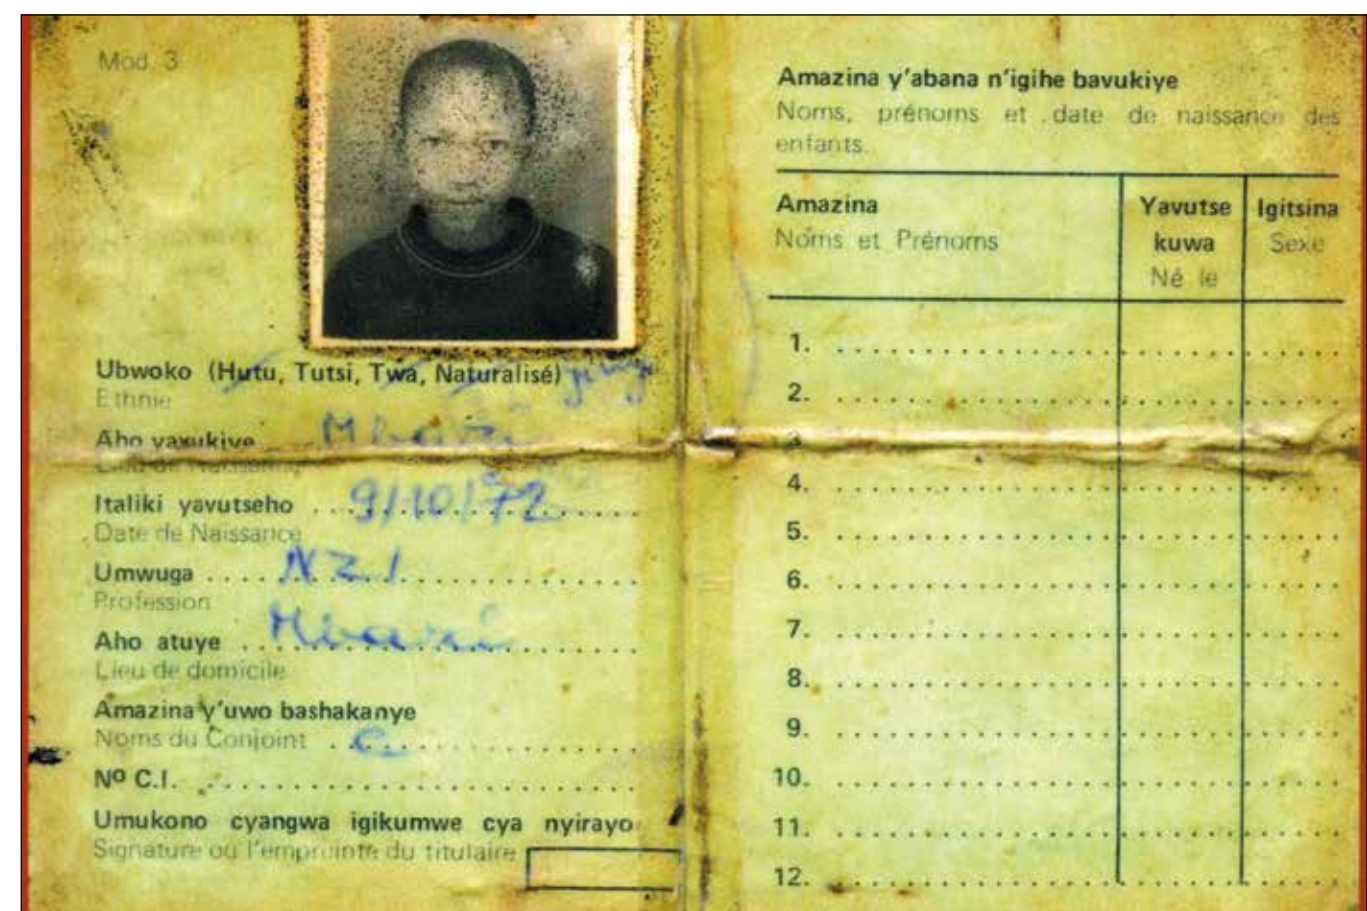 Mod. 3
Ubwoko (Hutu, Tutsi, Twa, Naturalisé)
Ethnie
Aho yavukiye
Lieu de Naissance
Italiki yavutseho 9/10/72
Date de Naissance
Umwuga .... NZI
Profession
Aho atuye ... Mbazi
Lieu de domicile
Amazina y'uwo bashakanye
Noms du Conjoint .. C
Nº C.I.
Umukono cyangwa igikumwe cya nyirayo
Signature ou l'empreinte du titulaire
Amazina y'abana n'igihe bavukiye
Noms, prénoms et date de naissance des
enfants.
Amazina
Noms et Prénoms
Yavutse
kuwa
Né le
Igitsina
Sexe
1.
2.
3
4.
5.
6.
7.
8.
9.
10.
11.
12.